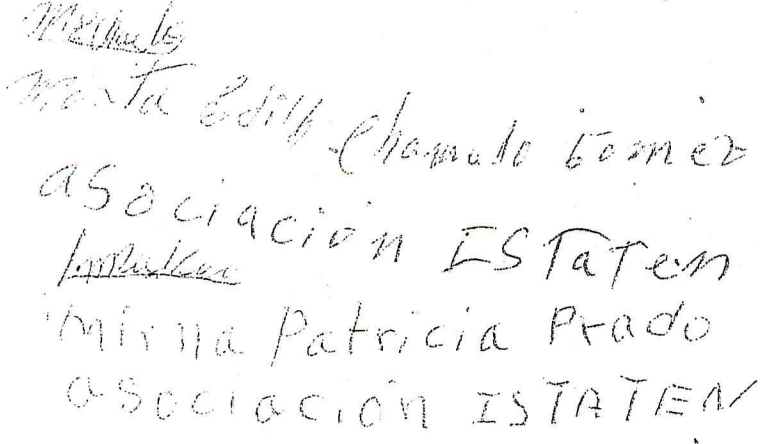 Marta Edith Chamalo Gomez
asociación ISTaTen
Mirna Patricia Prado
asociación ISTATEN